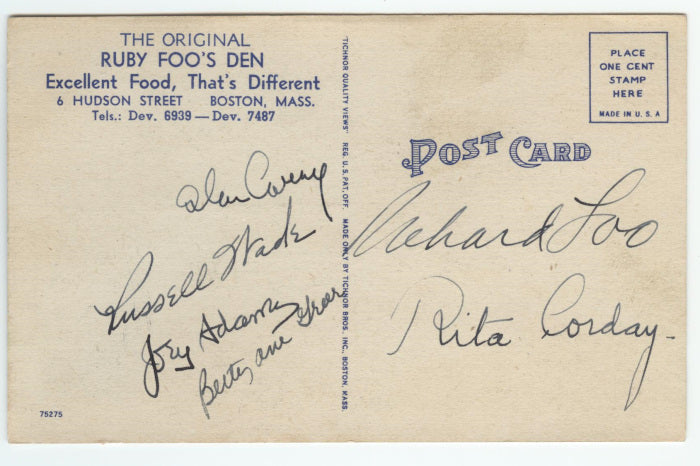 THE ORIGINAL
RUBY FOO'S DEN
Excellent Food, That's Different
6 HUDSON STREET BOSTON, MASS.
Tels.: Dev. 6939—Dev. 7487
"TICHNOR QUALITY VIEWS" REG. U. S. PAT. OFF. MADE ONLY BY TICHNOR BROS. INC., BOSTON, MASS.
PLACE
ONE CENT
STAMP
HERE
MADE IN U. S. A
POST CARD
Alan Carney
Russell Wade
Joey Adams
Betty ane
Richard Loo
Rita Corday.
75275